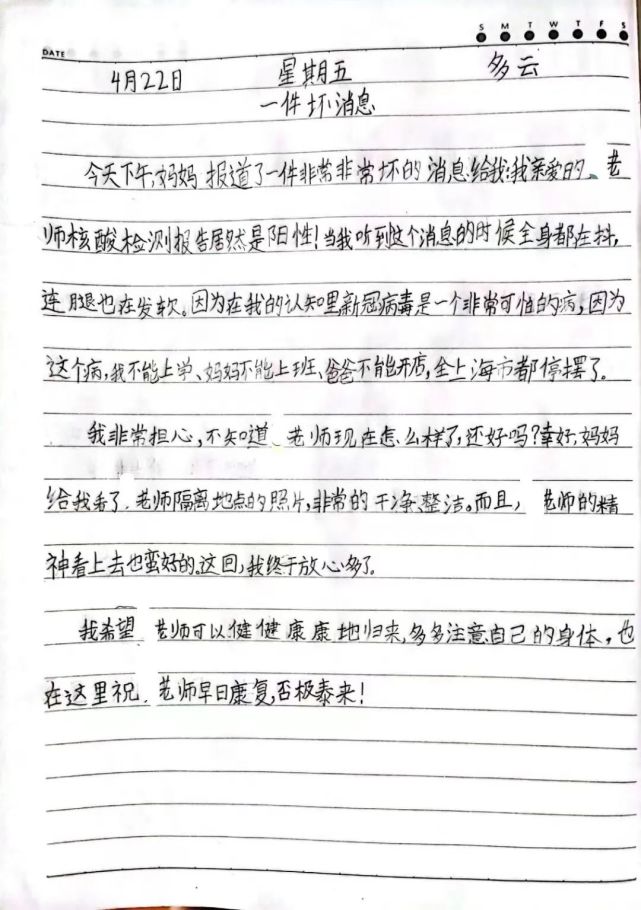 S M T W T F S
DATE
4月22日 星期五 多云
一件坏消息
今天下午,妈妈报道了一件非常非常坏的消息给我:我亲爱的、老
师核酸检测报告居然是阳性!当我听到这个消息的时候全身都在抖,
连腿也在发软。因为在我的认知里新冠病毒是一个非常可怕的病,因为
这个病,我不能上学、妈妈不能上班、爸爸不能开店,全上海市都停摆了。
我非常担心,不知道 老师现在怎么样了,还好吗?幸好,妈妈
给我看了 老师隔离地点的照片,非常的干净、整洁。而且, 老师的精
神看上去也蛮好的。这回,我终于放心多了。
我希望 老师可以健健康康地归来,多多注意自己的身体,也
在这里祝 老师早日康复,否极泰来!